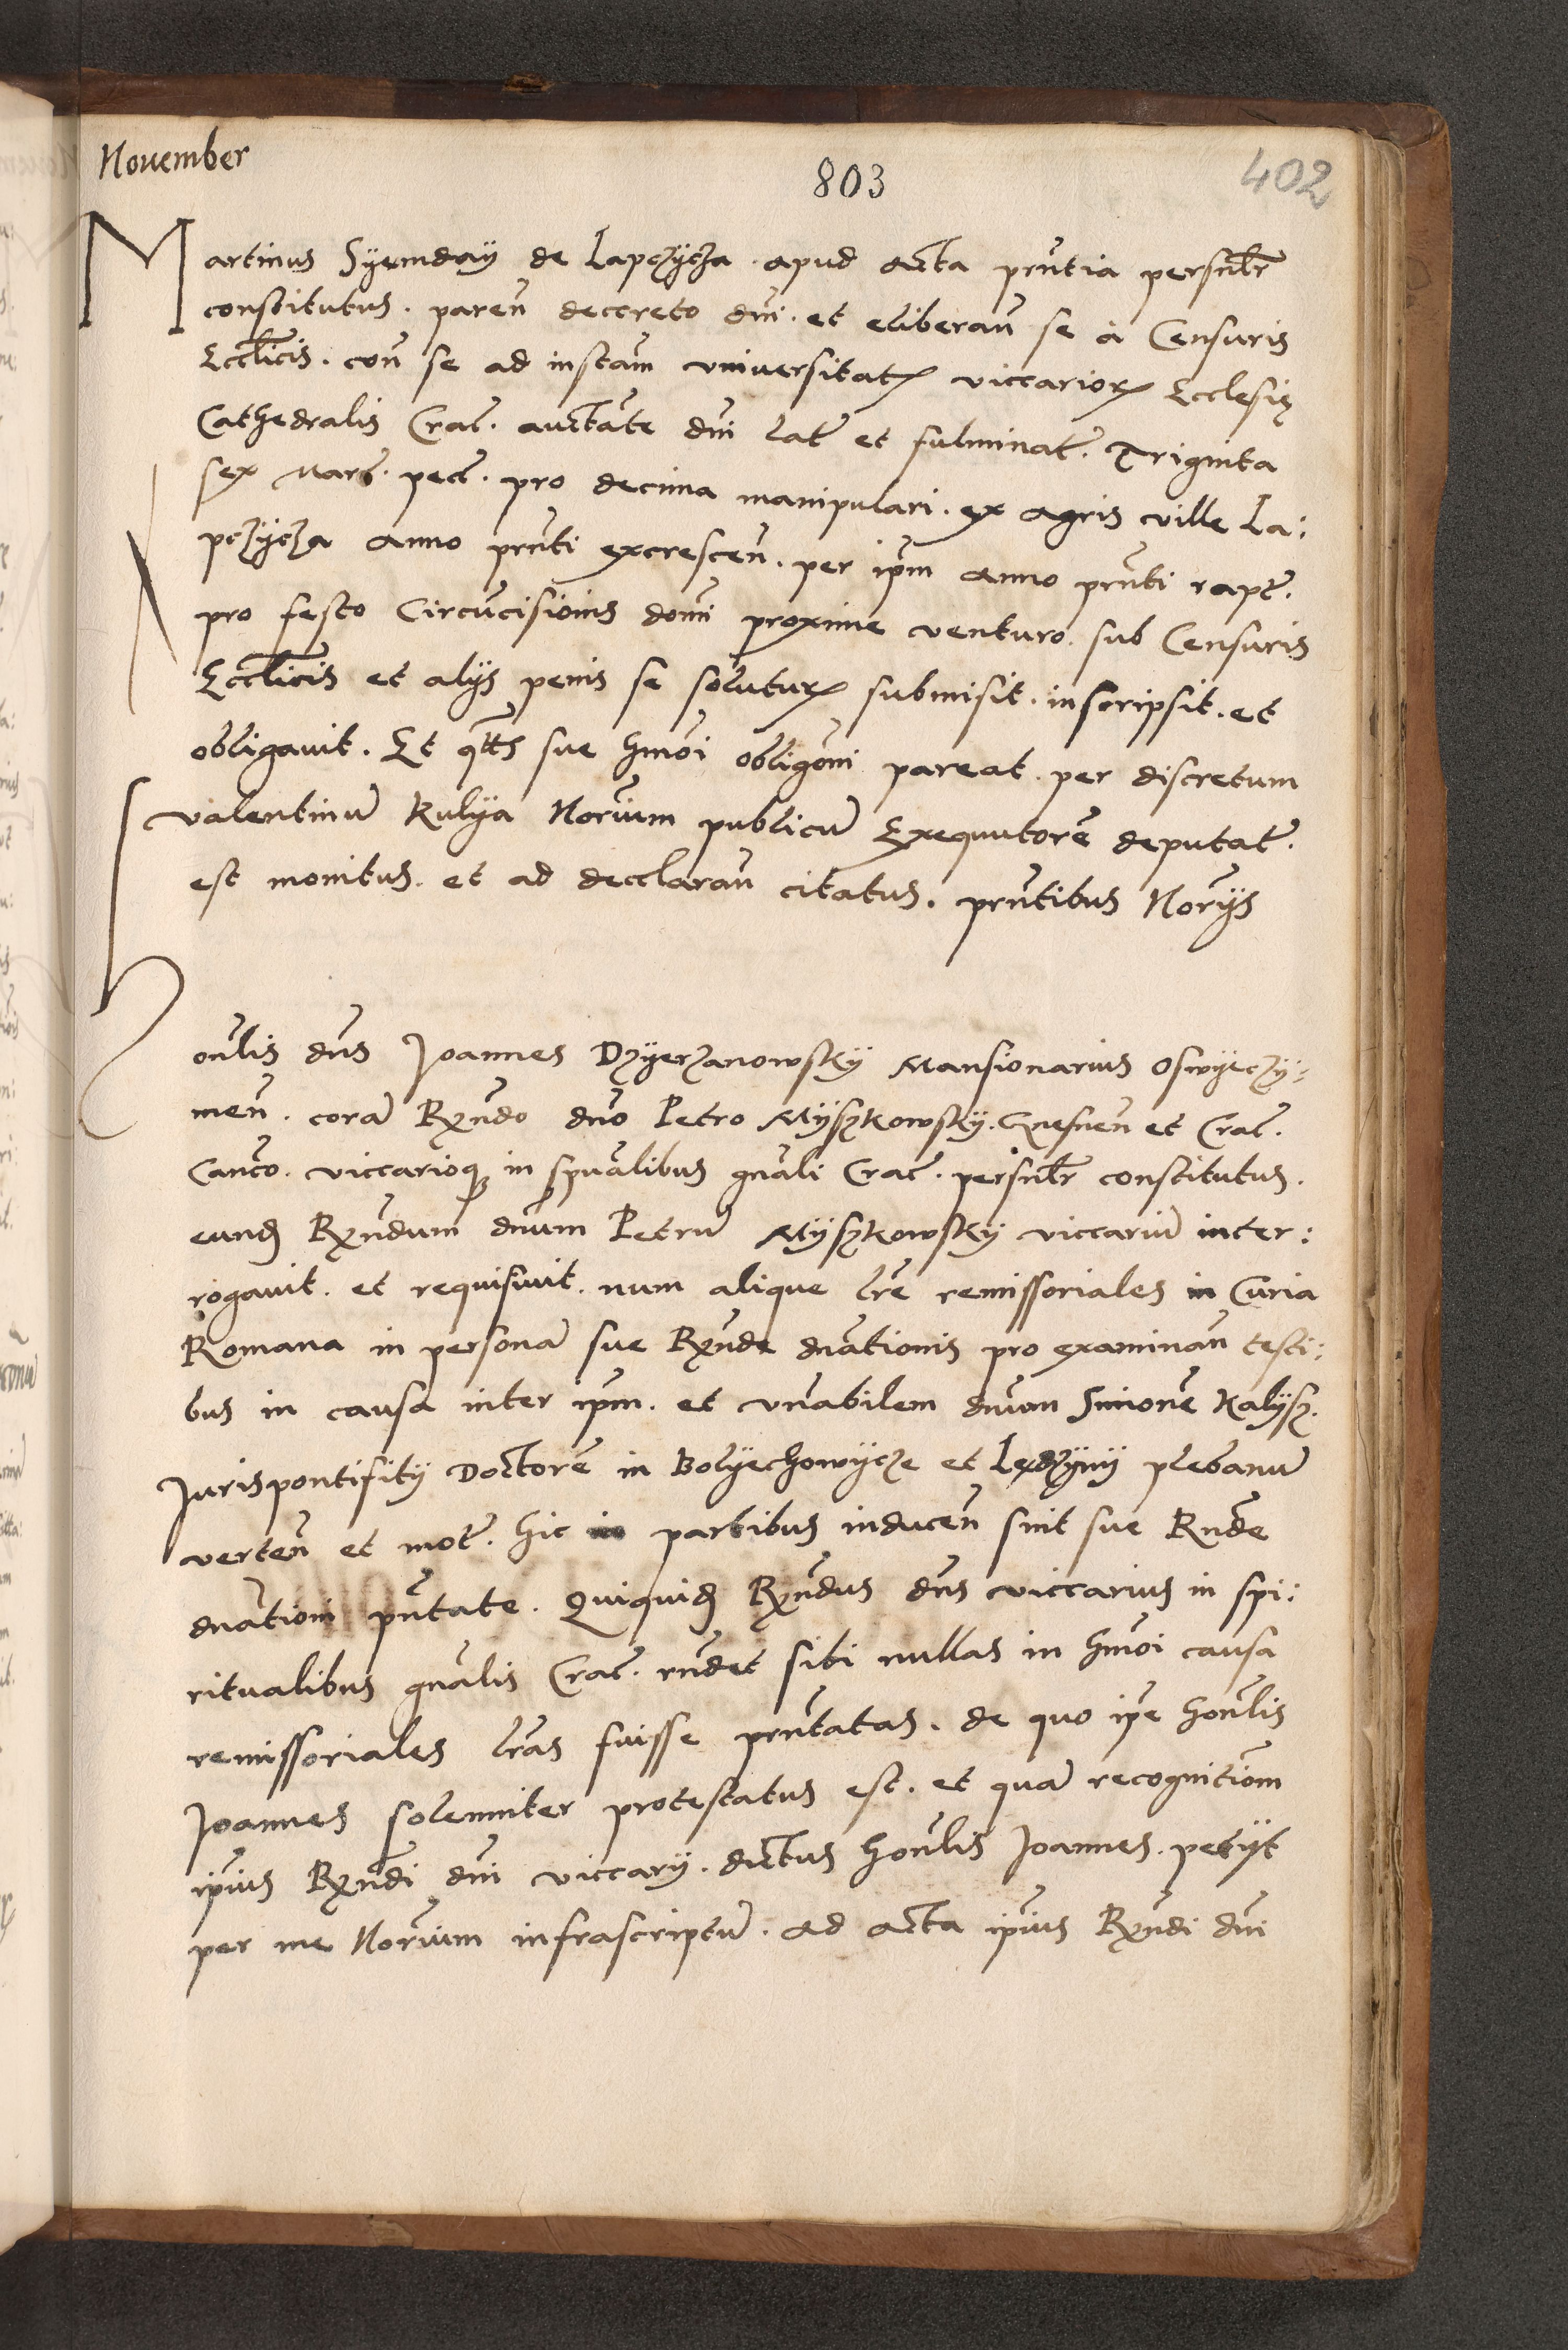 Nouember
803
402
Martinus Syemday de Lapczycza apud acta pnͬtia persnͣlr
constitutus. pareñ decreto dnī. et eliberañ se à Censuris
Ecclīcis. coñ se ad instam̄ vniuersitatꝭ viccarioꝝ Ecclesię
Cathedralis Crac̄. auctāte dnī lat̄ et fulminat̄. Triginta
sex Marc̄. pec̄. pro decima manipulari. ex agris ville La:
pczycza anno prn̄ti excrescen̄. per ip̄m anno prn̄ti rapt̄.
pro festo Circūcisionis domī proxime venturo. sub Censuris
Ecclīcis et alys penis se soluturꝝ submisit. inscripsit. et
obligauit. Et qt̄ts sue hmōi obligōni pareat. per discretum
valentinū Kulya Norīum publicū Exequutorē deputat̄.
est monitus. et ad decclaran̄ citatus. prn̄tibus Norīys
Honl̄is dn̄s Joannes Dzyerzanowsky Mansionarius Oswyeczy:
men̄. corā Rx̄ndo dn̄o Petro Mÿszkowskÿ. Gnesnen̄ et Crac̄.
Canc̄o. viccarioqꝫ in spūalibus gn̄ali Crac̄. persn̄lr constitutus.
eundꝫ Rx̄ndum dn̄um Petrū Mÿszkowskÿ viccariū inter:
rogauit. et requisiuit. num alique lr̄e remissoriales in Curia
Romana in personā sue Rx̄nde dn̄ationis pro examinan̄ testi:
bus in causa inter ip̄m. et vn̄abilem dn̄um Simonē Kalysz.
Jurispontifitÿ Doctorē in Bolyechowÿcze et Lędzyny plebanū
verten̄ et mot̄. hic partibus inducen̄ sint sue Rn̄de
dn̄ationi pn̄tate. Quiquidꝫ Rx̄ndus dn̄s viccarius in spi:
ritualibus gn̄alis Crac̄. rn̄det sibi nullas in hmōi causa
remissoriales lr̄as fuisse prn̄tatas. de quo ip̄e honl̄is
Joannes solenniter protestatus est. et quā recognitiōm
ip̄ius Rx̄ndi dnī viccarÿ. dictus honl̄is Joannes. petÿt
per me Norīum infrascriptū. ad acta ip̄ius Rx̄ndi dnī